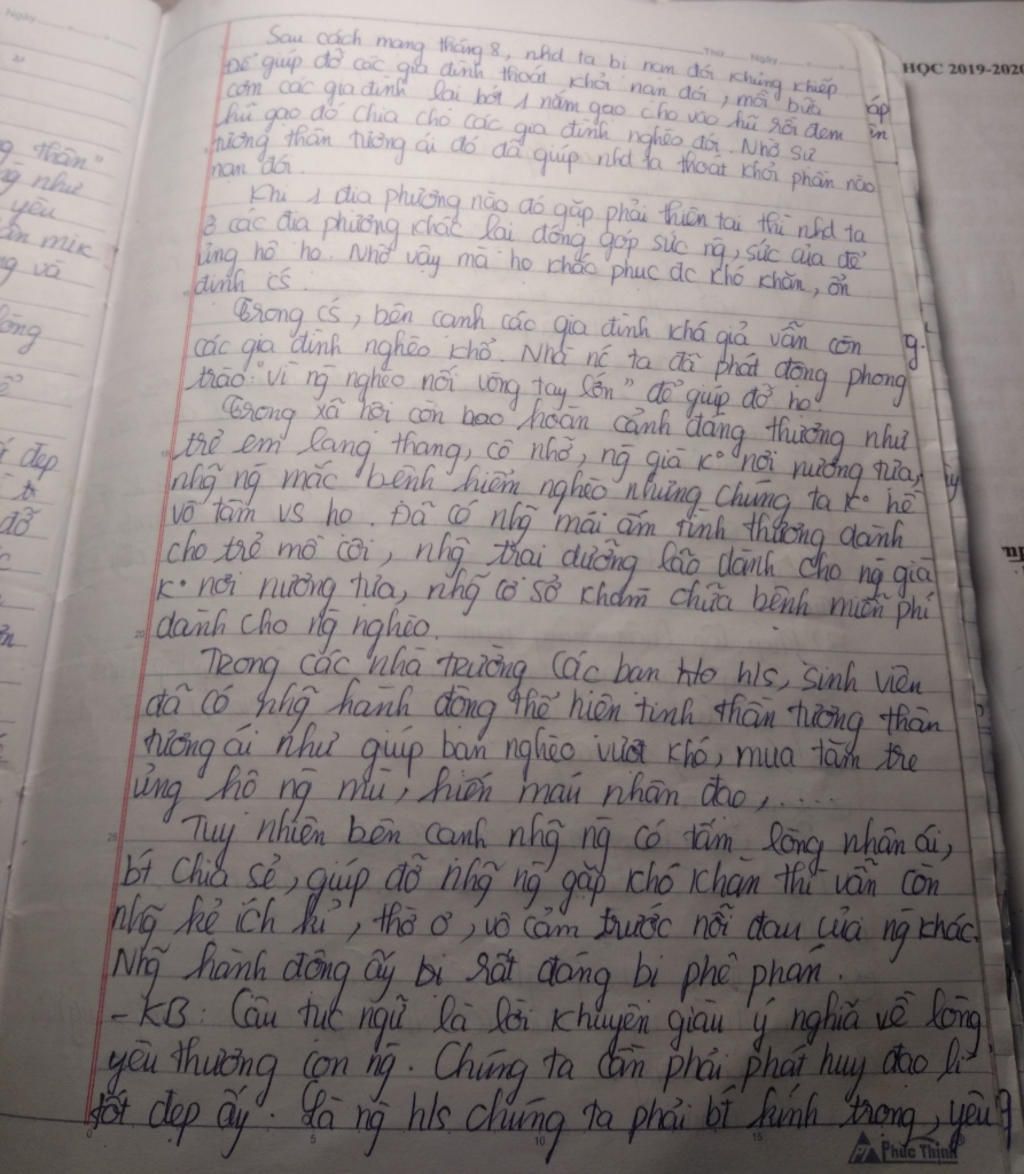 Sau cách mạng tháng 8, nhd ta bị nạn đói khủng khiếp
Để giúp đỡ các gia đình thoát khỏi nạn đói, mỗi bữa
cơm các gia đình lại bớt 1 nắm gạo cho vào hũ rồi đem
hũ gạo đó chia cho các gia đình nghèo đói. Nhờ sự
tương thân tương ái đó đã giúp nhd ta thoát khỏi phần nào
nạn đói.
Khi 1 địa phương nào đó gặp phải thiên tai thì nhd ta
ở các địa phương khác lại đóng góp sức ng, sức của để
ủng hộ họ. Nhờ vậy mà họ khắc phục đc khó khăn, ổn
định cs.
Trong cs, bên cạnh các gia đình khá giả vẫn còn
các gia đình nghèo khổ. Nhà nc ta đã phát động phong
trào: "Vì ng nghèo nối vòng tay lớn" để giúp đỡ họ.
Trong xã hội còn bao hoàn cảnh đáng thương như
trẻ em lang thang, cơ nhỡ, ng già k° nơi nương tựa,
nhg ng mắc bệnh hiểm nghèo nhưng chúng ta k° hề
vô tâm vs họ. Đã có nhg mái ấm tình thương dành
cho trẻ mồ côi, nhg trại dưỡng lão dành cho ng già
k° nơi nương tựa, nhg cơ sở khám chữa bệnh miễn phí
dành cho ng nghèo.
Trong các nhà trường các bạn hls, sinh viên
đã có nhg hành động thể hiện tinh thần tương thân
tương ái như giúp bạn nghèo vượt khó, mua tăm tre
ủng hộ ng mù, hiến máu nhân đạo,.....
Tuy nhiên bên cạnh nhg ng có tấm lòng nhân ái,
bt chia sẻ, giúp đỡ nhg ng gặp khó khăn thì vẫn còn
nhg kẻ ích kỉ, thờ ơ, vô cảm trước nỗi đau của ng khác.
Nhg hành động ấy bị rất đáng bị phê phán.
- KB: Câu tục ngữ là lời khuyên giàu ý nghĩa về lòng
yêu thương con ng. Chúng ta cần phải phát huy đạo lí
tốt đẹp ấy. Là ng hls chúng ta phải bt kính trọng, yêu
HỌC 2019-2020
thân"
như
yêu
và
lòng
đẹp
đỡ
Phúc Thịnh